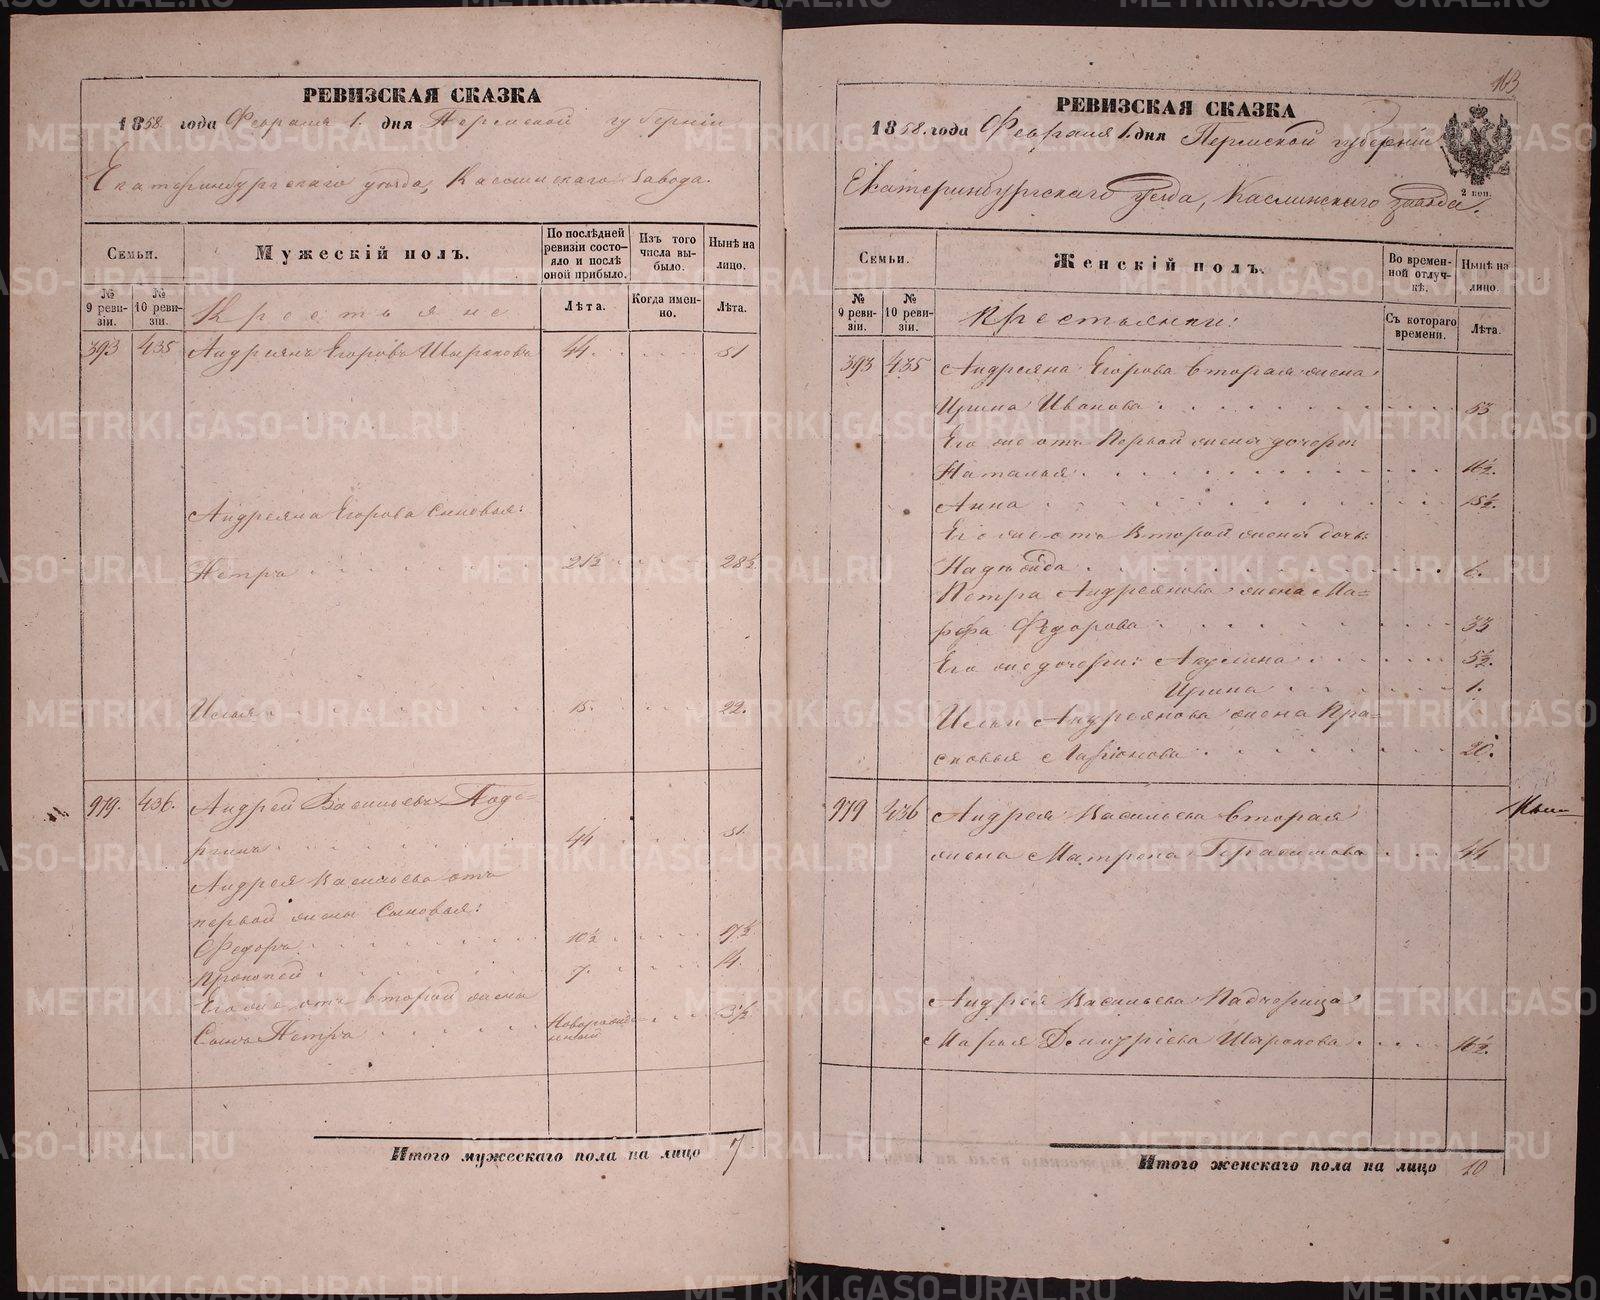 РЕВИЗСКАЯ СКАЗКА
1858 года Февраля 1. дня Пермской губерніи
Екатеринбургскаго уѣзда, Каслинскаго Завода.
Семьи.
Мужескій полъ.
По послѣдней ревизіи состояло и послѣ оной прибыло.
Изъ того числа выбыло.
Нынѣ на лицо.
№ 9 ревизіи.
№ 10 ревизіи.
Крестьяне
Лѣта.
Когда именно.
Лѣта.
393 435 Андреянъ Егоровъ 44 51
Андреяна Егорова Сыновья:
Петръ 21½ 28½
Илья 15. 22.
979. 436. Андрей Васильевъ
44 51.
Андрея Васильева отъ
первой жены Сыновья:
Федоръ 10½ 17½
Прокопей 7. 14.
Его же отъ второй жены
Сынъ Петръ Новорожденный 3½
Итого мужескаго пола на лицо 7
163
РЕВИЗСКАЯ СКАЗКА
1858. года Февраля 1. дня Пермской губерніи
2 коп.
Екатеринбургскаго уѣзда, Каслинскаго завода.
Семьи.
Женскій полъ.
Во временной отлучкѣ.
Нынѣ на лицо.
№ 9 ревизіи.
№ 10 ревизіи.
Крестьянки:
Съ котораго времени.
Лѣта.
393 435 Андреяна Егорова вторая жена
Ирина Иванова 53
Его же отъ Первой жены дочери:
Наталья 16½.
Анна 15½.
Его же отъ Второй жены дочь:
Надѣжда 6.
Петра Андреянова жена Ма=
рфа Федорова 33
Его же дочери: Акулина 5½.
Ирина 1.
Ильи Андреянова жена Пра=
сковья Ларіонова 20.
979 436 Андрея Васильева вторая
жена Матрена Герасимова 44
Андрея Васильева Падчерица
Марья Дмитріева Широкова 16½.
Итого женскаго пола на лицо 10
METRIKI.GASO-URAL.RU